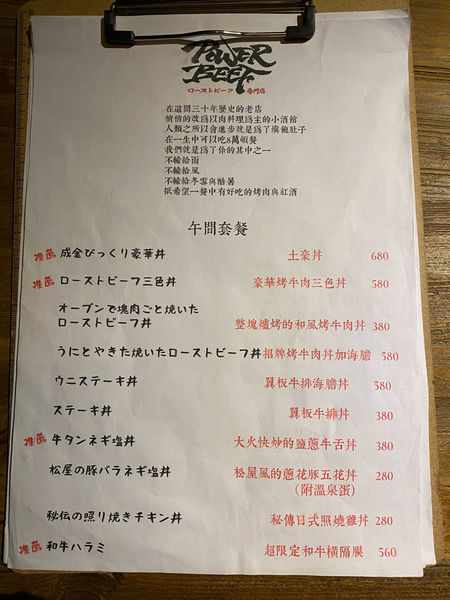 POWER
BEEF
ローストビーフ 専門店
在這間三十年歷史的老店
悄悄的改為以肉料理為主的小酒館
人類之所以會進步就是為了填飽肚子
在一生中可以吃8萬頓餐
我們就是為了你的其中之一
不輸給雨
不輸給風
不輸給冬雪與酷暑
祇希望一餐中有好吃的烤肉與紅酒
午間套餐
推薦 成金びっくり豪華丼 土豪丼 680
推薦 ローストビーフ三色丼 豪華烤牛肉三色丼 580
オーブンで塊肉ごと焼いた
ローストビーフ丼 整塊爐烤的和風烤牛肉丼 380
うにとやきた焼いたローストビーフ丼 招牌烤牛肉丼加海膽 580
ウニステーキ丼 翼板牛排海膽丼 580
ステーキ丼 翼板牛排丼 380
推薦 牛タンネギ塩丼 大火快炒的鹽蔥牛舌丼 380
松屋の豚バラネギ塩丼 松屋風的蔥花豚五花丼 280
(附溫泉蛋)
秘伝の照り焼きチキン丼 秘傳日式照燒雞丼 280
推薦 和牛ハラミ 超限定和牛橫隔膜 560